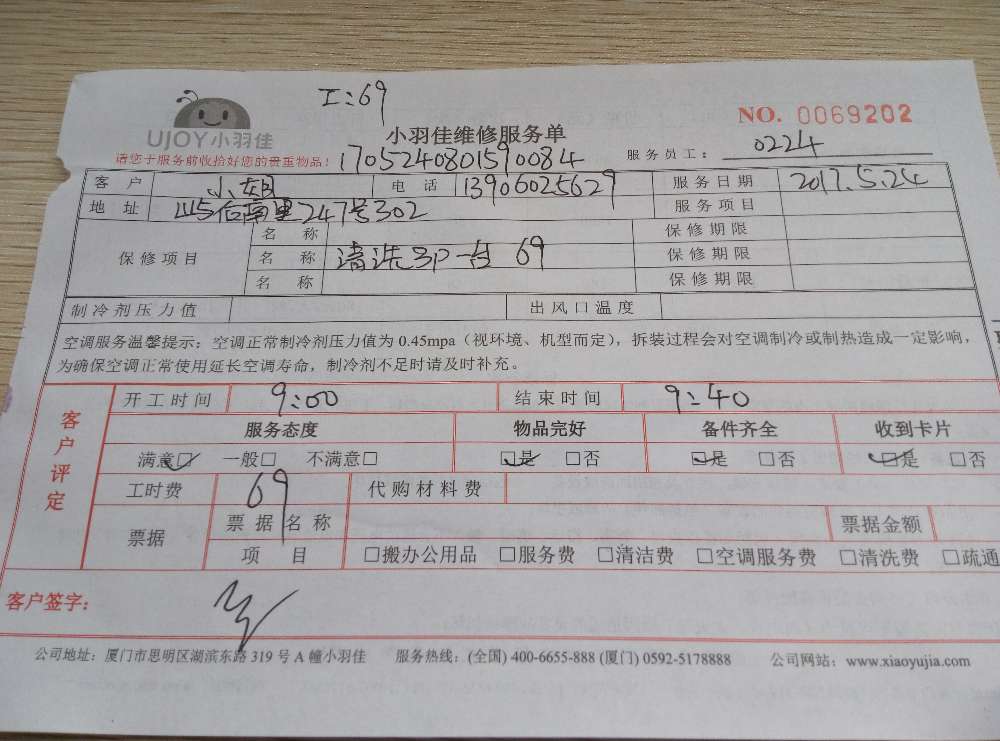 工:69
NO. 0069202
UJOY小羽佳
小羽佳维修服务单
请您于服务前收拾好您的贵重物品! 1705240801590084 服务员工: 0224
客 户 小姐 电 话 13906025629 服务日期 2017.5.24
地 址 后南里247号302 服务项目
保修项目
名 称 保修期限
名 称 清洗3P一台 69 保修期限
名 称 保修期限
制冷剂压力值 出风口温度
空调服务温馨提示:空调正常制冷剂压力值为 0.45mpa(视环境、机型而定),拆装过程会对空调制冷或制热造成一定影响,
为确保空调正常使用延长空调寿命,制冷剂不足时请及时补充。
客户评定
开工时间 9:00 结束时间 9:40
服务态度 物品完好 备件齐全 收到卡片
满意☑ 一般□ 不满意□ ☑是 □否 ☑是 □否 ☑是 □否
工时费 69 代购材料费
票据 票据名称 票据金额
项 目 □搬办公用品 □服务费 □清洁费 □空调服务费 □清洗费 □疏通
客户签字:
公司地址:厦门市思明区湖滨东路 319 号 A 幢小羽佳 服务热线:(全国) 400-6655-888 (厦门) 0592-5178888 公司网站:www.xiaoyujia.com